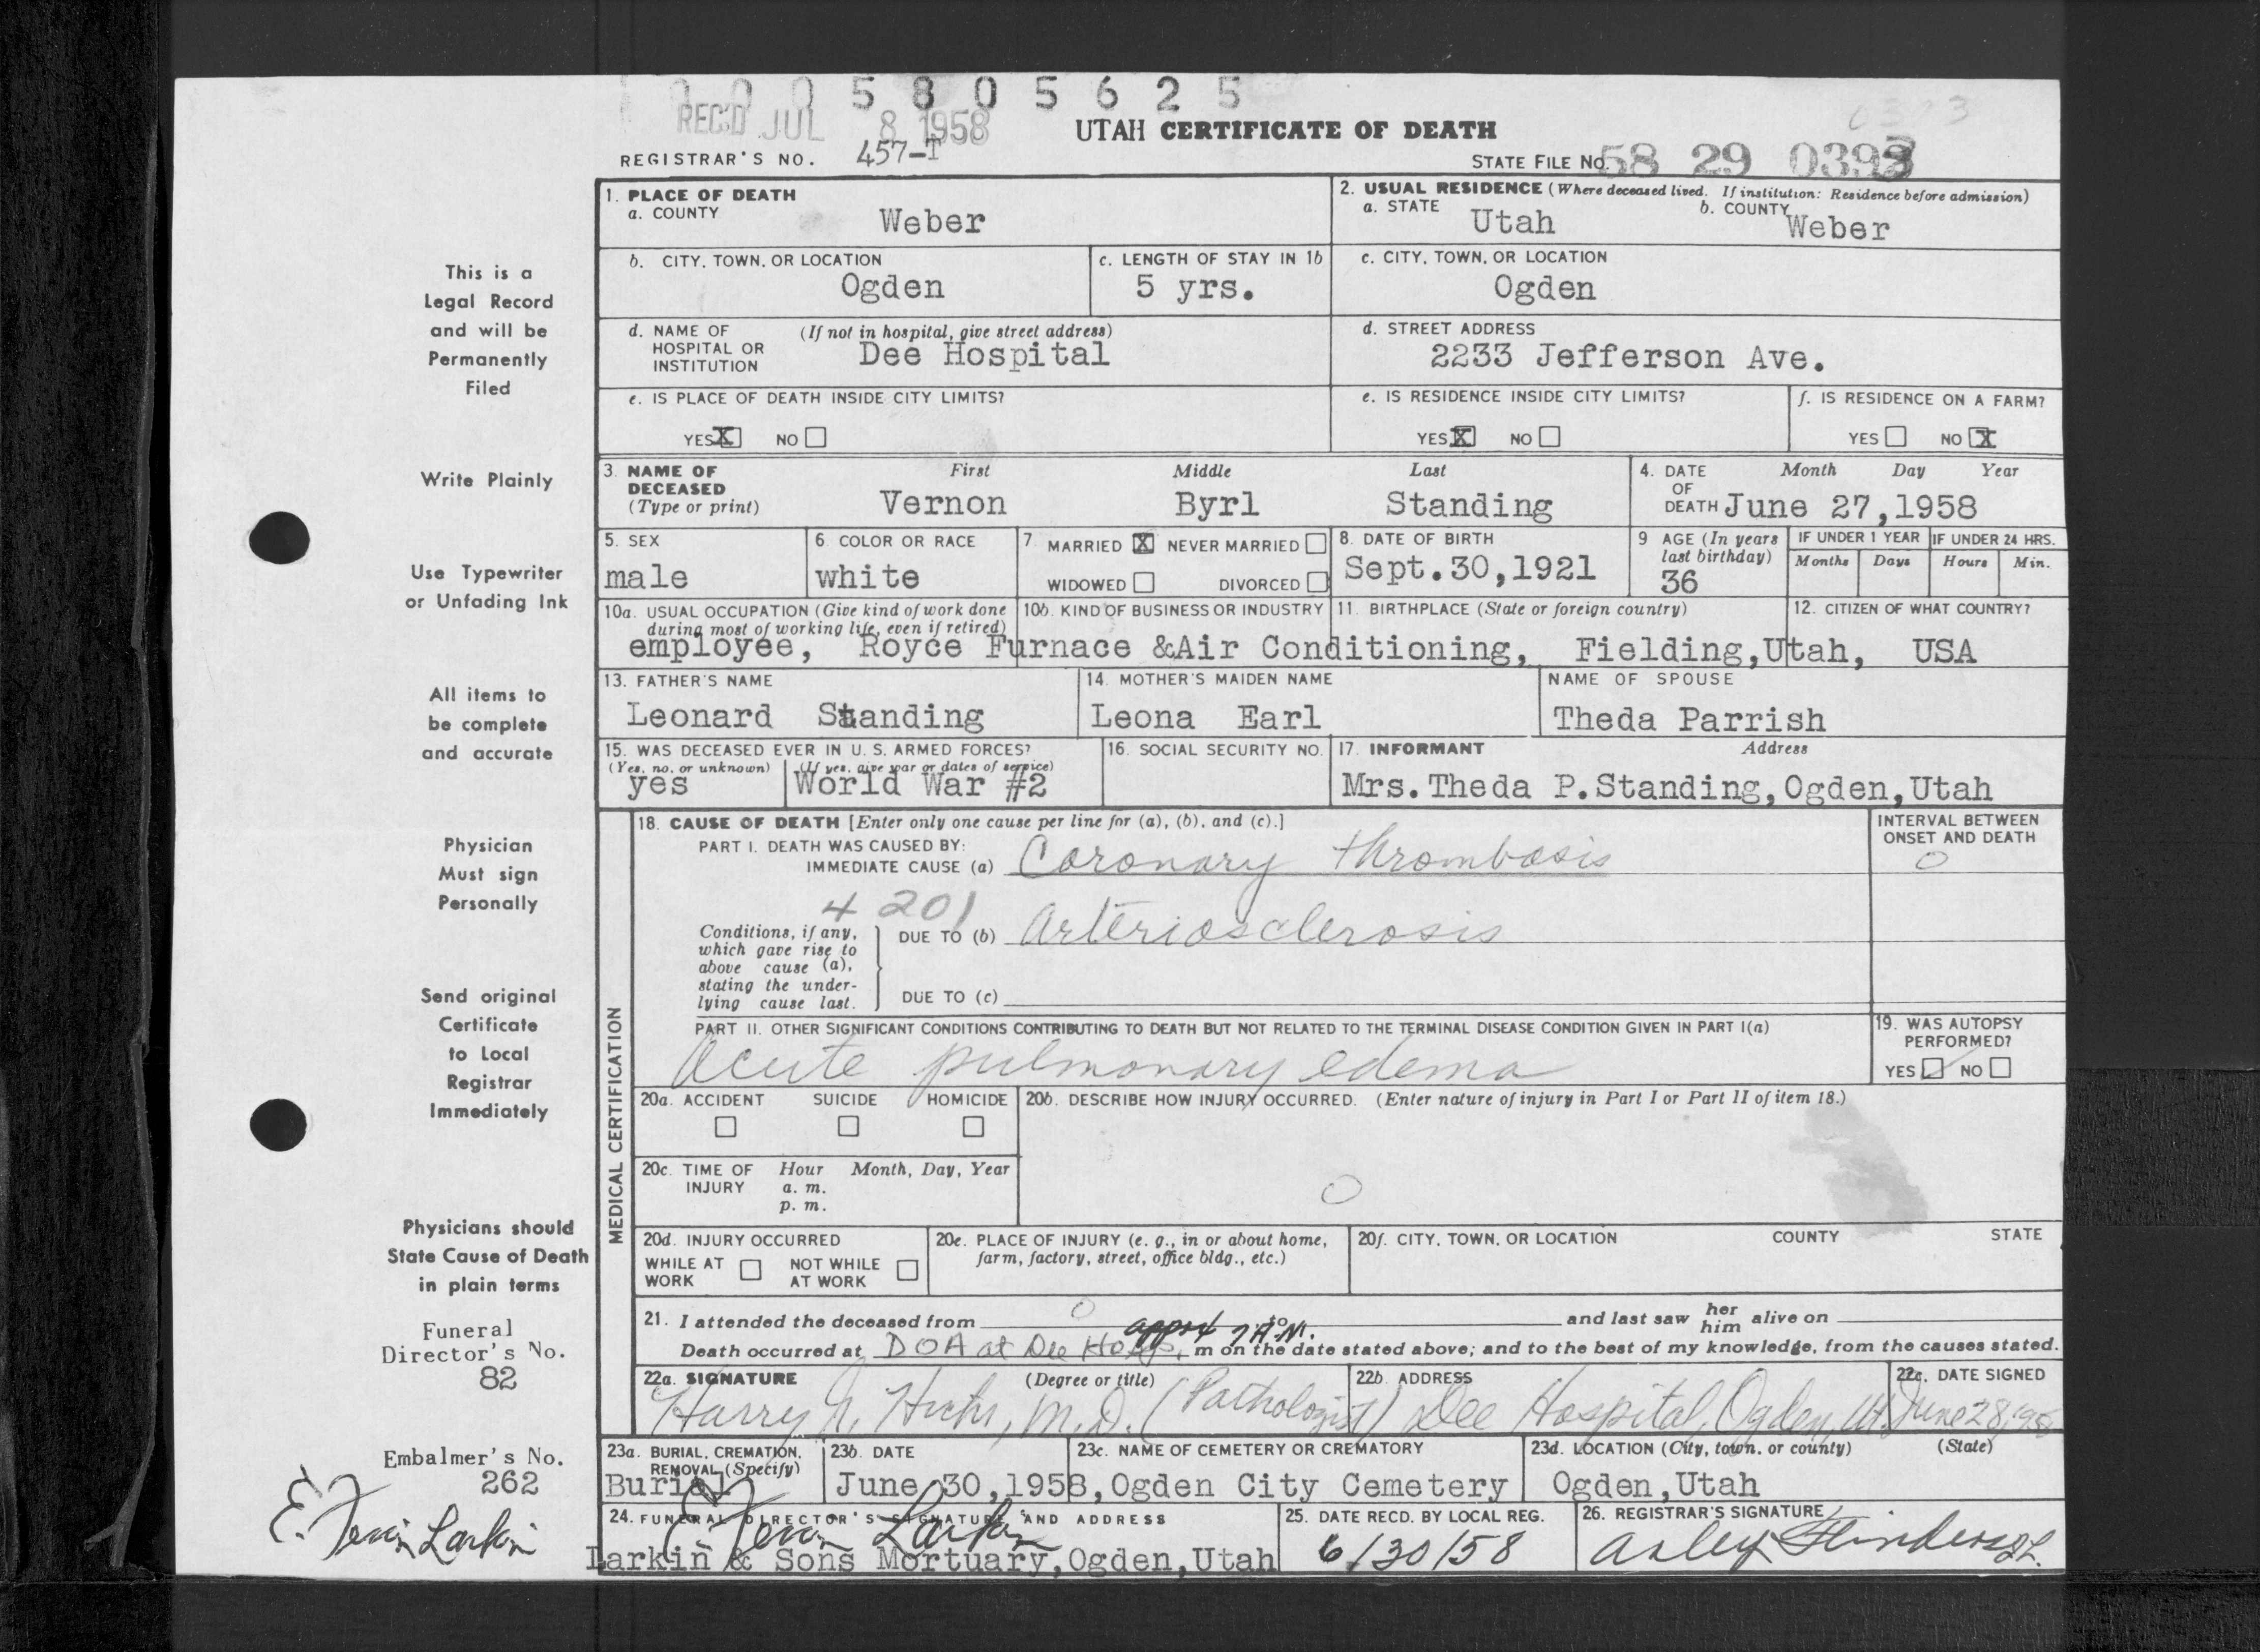 5 8 0 5 6 2 5
REC'D JUL 8 1958
UTAH CERTIFICATE OF DEATH
REGISTRAR'S NO. 457-T
STATE FILE NO. 58 29 0393
This is a
Legal Record
and will be
Permanently
Filed
Write Plainly
Use Typewriter
or Unfading Ink
All items to
be complete
and accurate
Physician
Must sign
Personally
Send original
Certificate
to Local
Registrar
Immediately
Physicians should
State Cause of Death
in plain terms
Funeral
Director's No.
82
Embalmer's No.
262
Larkin
1. PLACE OF DEATH
a. COUNTY
Weber
2. USUAL RESIDENCE (Where deceased lived. If institution: Residence before admission)
a. STATE Utah b. COUNTY Weber
b. CITY, TOWN, OR LOCATION
Ogden
c. LENGTH OF STAY IN 1b
5 yrs.
c. CITY, TOWN, OR LOCATION
Ogden
d. NAME OF HOSPITAL OR INSTITUTION (If not in hospital, give street address)
Dee Hospital
d. STREET ADDRESS
2233 Jefferson Ave.
e. IS PLACE OF DEATH INSIDE CITY LIMITS?
YES X NO
e. IS RESIDENCE INSIDE CITY LIMITS?
YES X NO
f. IS RESIDENCE ON A FARM?
YES NO X
3. NAME OF DECEASED (Type or print)
First Middle Last
Vernon Byrl Standing
4. DATE OF DEATH Month Day Year
June 27,1958
5. SEX
male
6. COLOR OR RACE
white
7. MARRIED X NEVER MARRIED
WIDOWED DIVORCED
8. DATE OF BIRTH
Sept.30,1921
9 AGE (In years last birthday)
36
IF UNDER 1 YEAR
Months Days
IF UNDER 24 HRS.
Hours Min.
10a. USUAL OCCUPATION (Give kind of work done during most of working life, even if retired)
10b. KIND OF BUSINESS OR INDUSTRY
11. BIRTHPLACE (State or foreign country)
12. CITIZEN OF WHAT COUNTRY?
employee, Royce Furnace &Air Conditioning, Fielding,Utah, USA
13. FATHER'S NAME
Leonard Standing
14. MOTHER'S MAIDEN NAME
Leona Earl
NAME OF SPOUSE
Theda Parrish
15. WAS DECEASED EVER IN U. S. ARMED FORCES?
(Yes, no, or unknown) (If yes, give war or dates of service)
yes World War #2
16. SOCIAL SECURITY NO.
17. INFORMANT Address
Mrs.Theda P.Standing,Ogden,Utah
MEDICAL CERTIFICATION
18. CAUSE OF DEATH [Enter only one cause per line for (a), (b), and (c).]
INTERVAL BETWEEN ONSET AND DEATH
0
PART I. DEATH WAS CAUSED BY:
IMMEDIATE CAUSE (a) Coronary thrombosis
4 201
Conditions, if any, which gave rise to above cause (a), stating the underlying cause last.
DUE TO (b) Arteriosclerosis
DUE TO (c)
PART II. OTHER SIGNIFICANT CONDITIONS CONTRIBUTING TO DEATH BUT NOT RELATED TO THE TERMINAL DISEASE CONDITION GIVEN IN PART I(a)
Acute pulmonary edema
19. WAS AUTOPSY PERFORMED?
YES NO
20a. ACCIDENT SUICIDE HOMICIDE
20b. DESCRIBE HOW INJURY OCCURRED. (Enter nature of injury in Part I or Part II of item 18.)
0
20c. TIME OF INJURY Hour Month, Day, Year
a. m.
p. m.
20d. INJURY OCCURRED
WHILE AT WORK NOT WHILE AT WORK
20e. PLACE OF INJURY (e. g., in or about home, farm, factory, street, office bldg., etc.)
20f. CITY, TOWN, OR LOCATION COUNTY STATE
21. I attended the deceased from 0 to and last saw her him alive on
approx 7 A.M.
Death occurred at DOA at Dee Hosp. m on the date stated above; and to the best of my knowledge, from the causes stated.
22a. SIGNATURE (Degree or title)
Harry M.D. (Pathologist)
22b. ADDRESS
Dee Hospital, Ogden, Ut.
22c. DATE SIGNED
June 28, 1958
23a. BURIAL, CREMATION, REMOVAL (Specify)
Burial
23b. DATE
June 30,1958,
23c. NAME OF CEMETERY OR CREMATORY
Ogden City Cemetery
23d. LOCATION (City, town, or county) (State)
Ogden,Utah
24. FUNERAL DIRECTOR'S SIGNATURE AND ADDRESS
Larkin
Larkin & Sons Mortuary,Ogden,Utah
25. DATE RECD. BY LOCAL REG.
6/30/58
26. REGISTRAR'S SIGNATURE